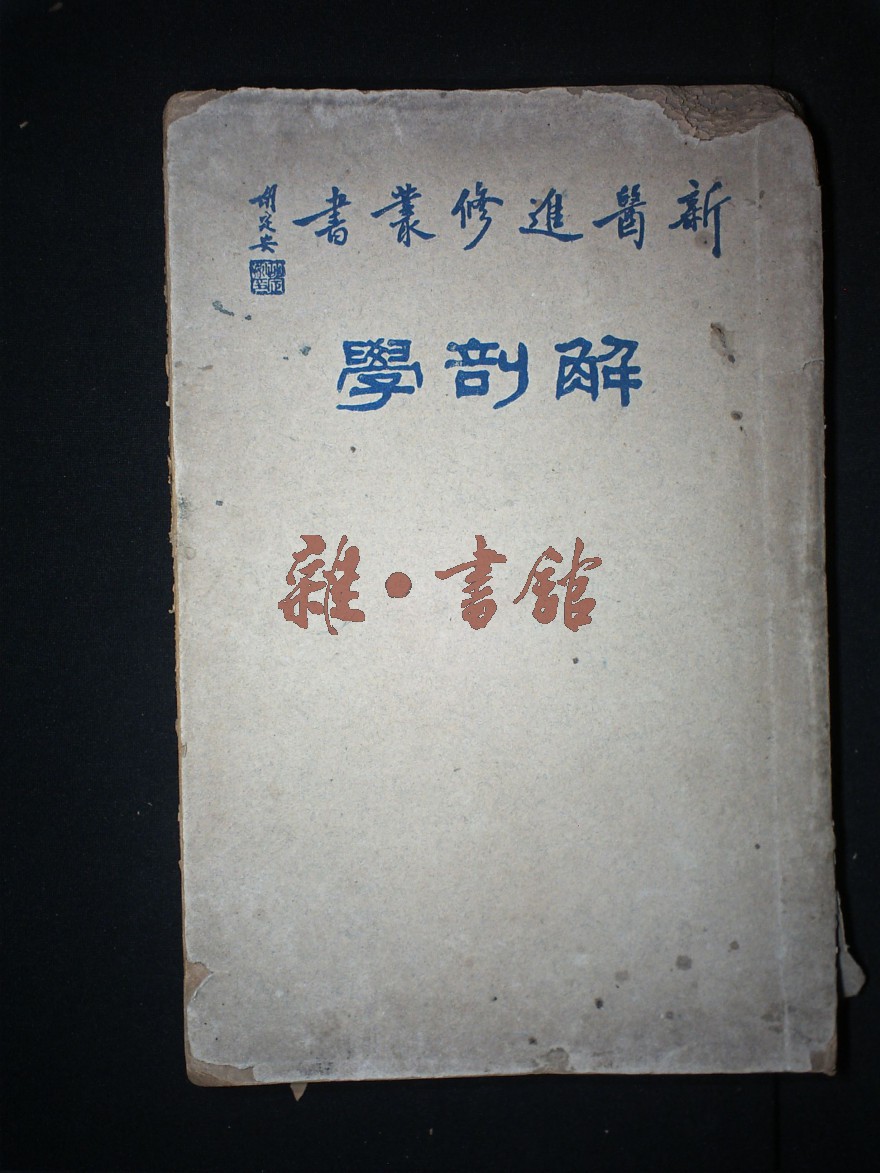 新醫進修叢書
胡定安
解剖學
雜·書館